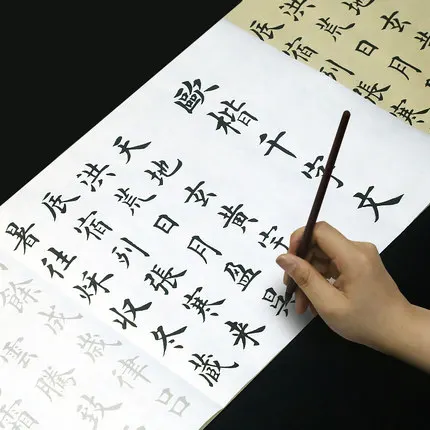 玄黃
洪荒日月
辰宿列張寒
歐楷千字文
天地玄黃宇
洪荒日月盈昃
辰宿列張寒來
暑往秌收冬藏
餘成歲律呂
雲騰致
霜